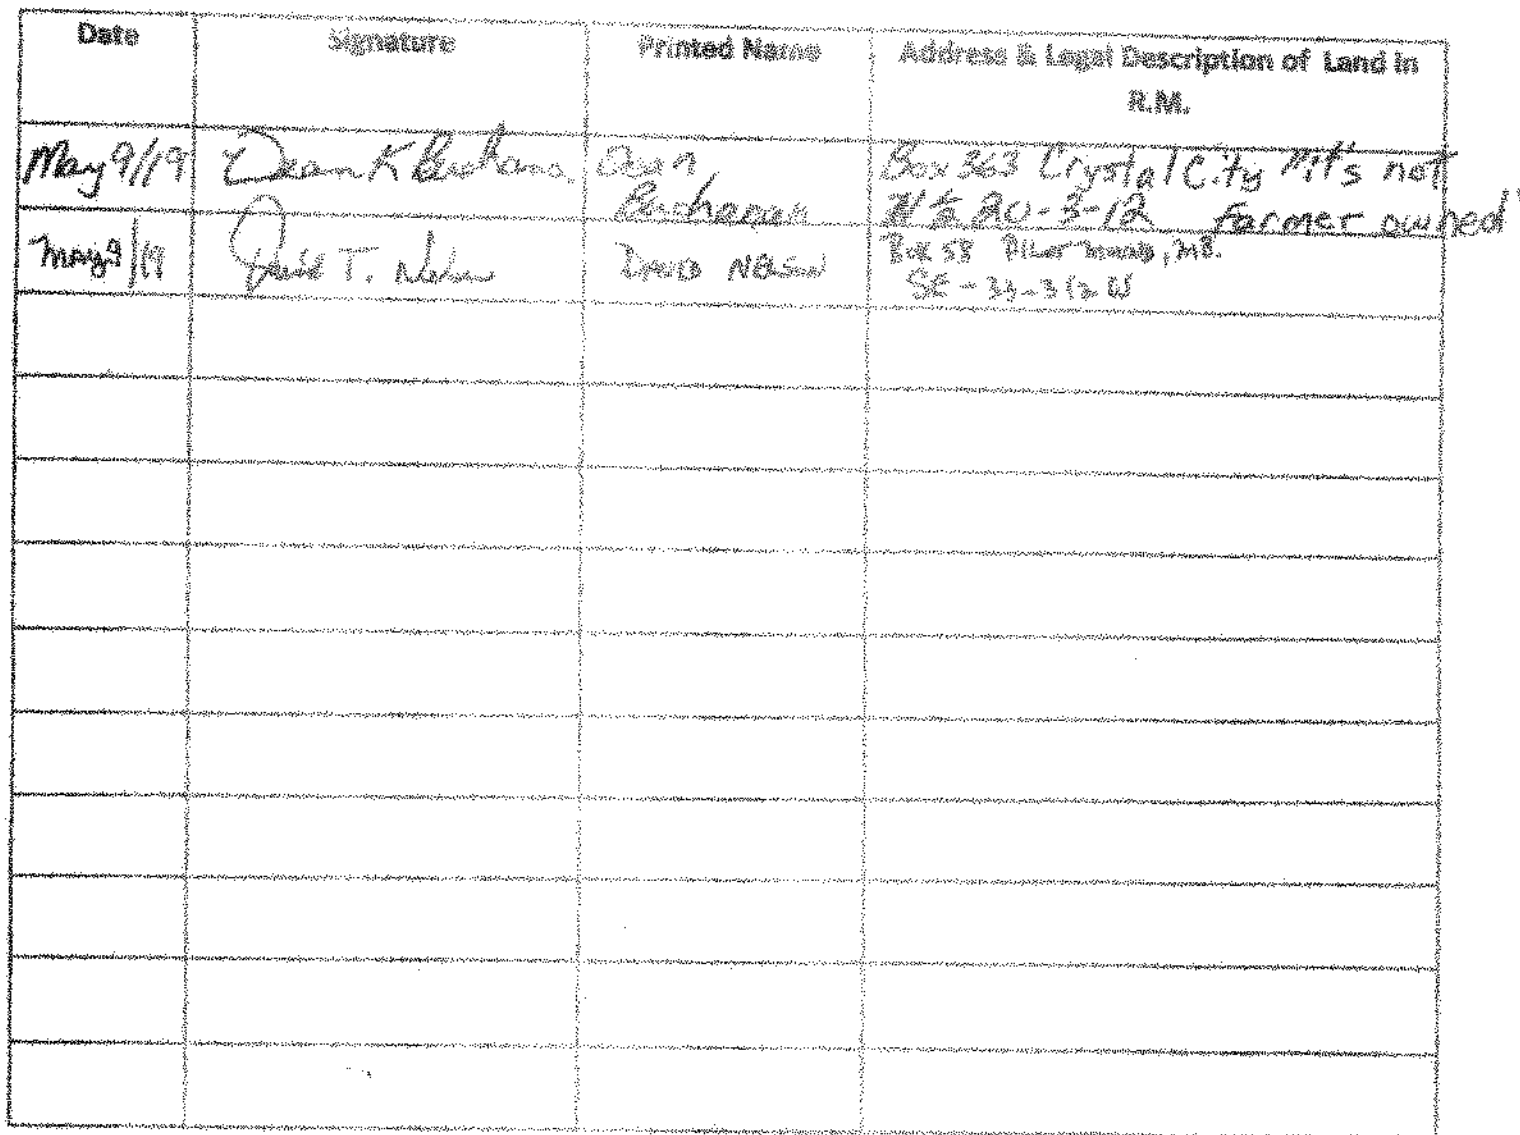 Date Signature Printed Name Address & Legal Description of Land in
R.M.
May 9/19 Dean K Buchanan Dean Box 363 Crystal City "it's not
Buchanan N ½ 20-3-12 Farmer owned"
May 9/19 David T. Nelson DAVID NELSON Box 58 PILOT MOUND, MB.
SE - 33-3-12 W